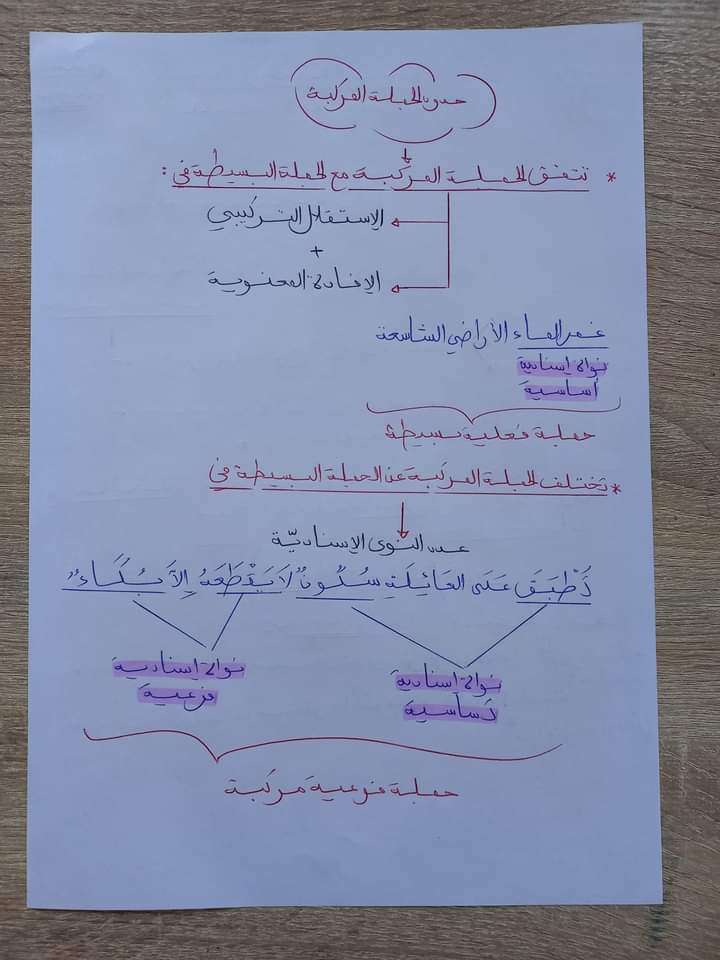 حدود الجملة المركبة
* تتفق الجملة المركبة مع الجملة البسيطة في :
الاستقلال التركيبي
+
الإفادة المعنوية
غمر الماء الأراضي الشاسعة
نواة إسنادية
أساسية
جملة فعلية بسيطة
* تختلف الجملة المركبة عن الجملة البسيطة في
عدد النوى الإسناديّة
أَطْبَقَ عَلَى العَائِلَةِ سُكُونٌ لَا يَقْطَعُهُ إِلاَّ بُكَاءٌ
نواة إسنادية
أساسية
نواة إسنادية
فرعية
جملة فرعية مركبة